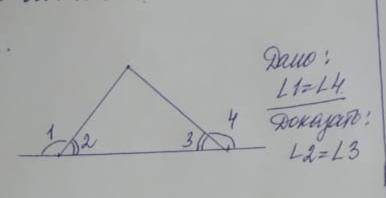 Дано:
∠1=∠4
Доказать:
∠2=∠3
1
2
3
4